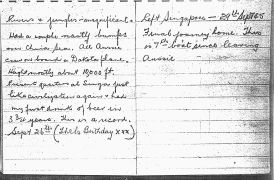 Rivers & jungles - magnificent.
Had a couple nasty bumps
over China Sea. All Aussie
crew on board a Dakota plane.
Height mostly about 10,000 ft.
quarters at Singas just
like civilization again & had
my first drinks of beer in
3¾ years. This is a record.
Sept 26th ( Birthday xxx)
Left Singapore — 29th Sept 45
Final journey home. This
is 7th boat since leaving
Aussie